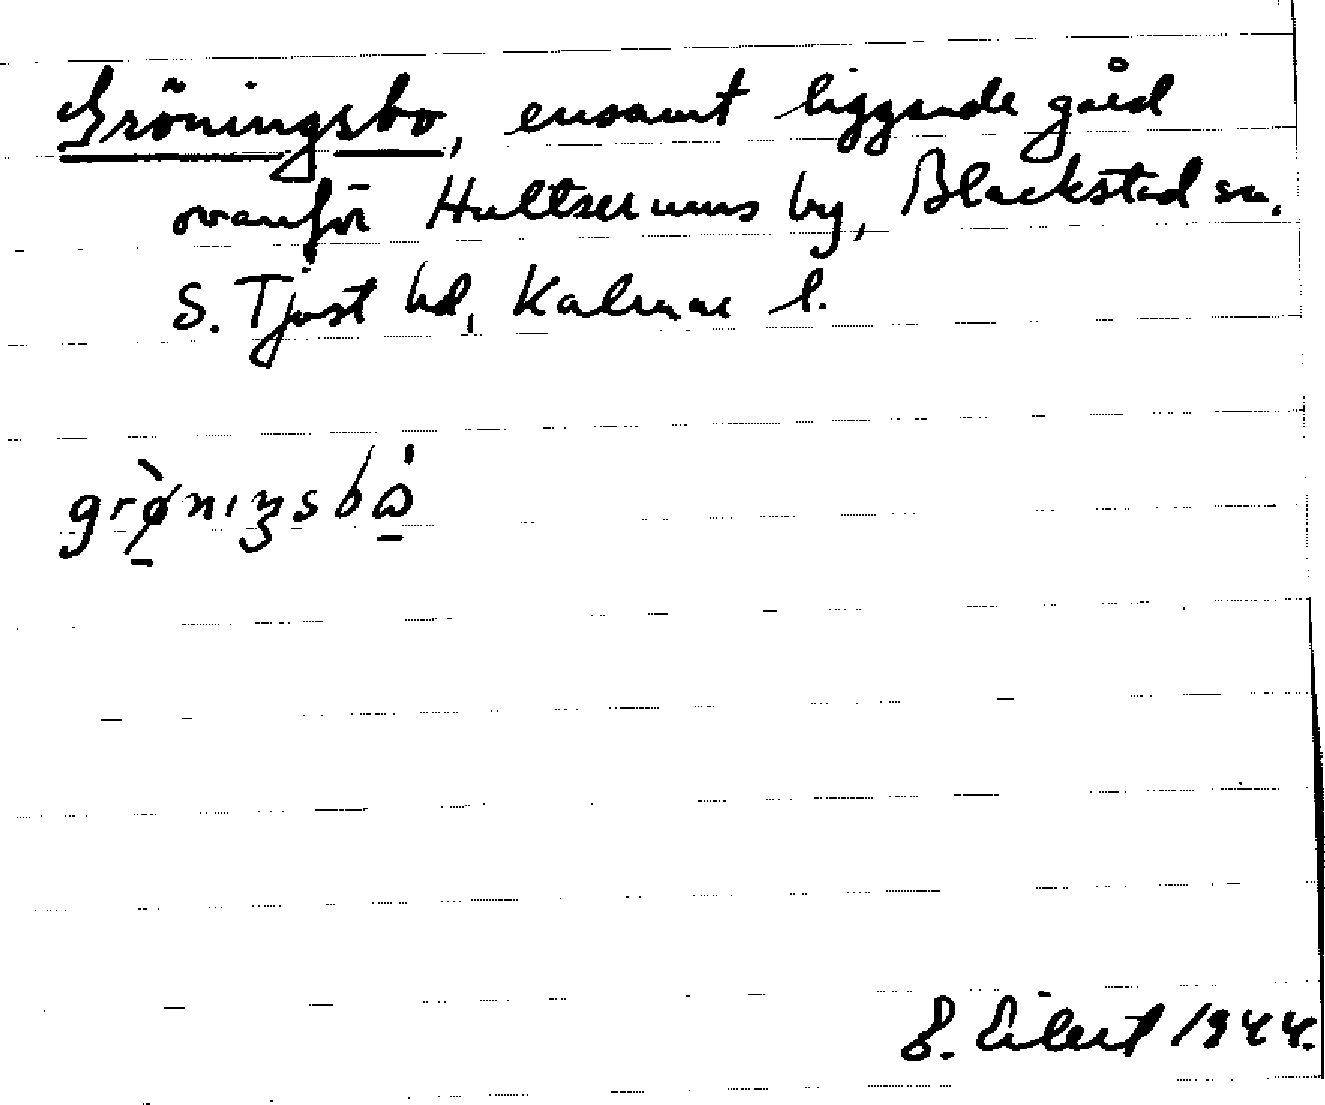 Gröningsbo, ensamt liggande gård
ovanför Hultserums by, Blackstad sn.
S. Tjust hd, Kalmar l.
grø̀niŋsbɷ̀
Eilert 1944.